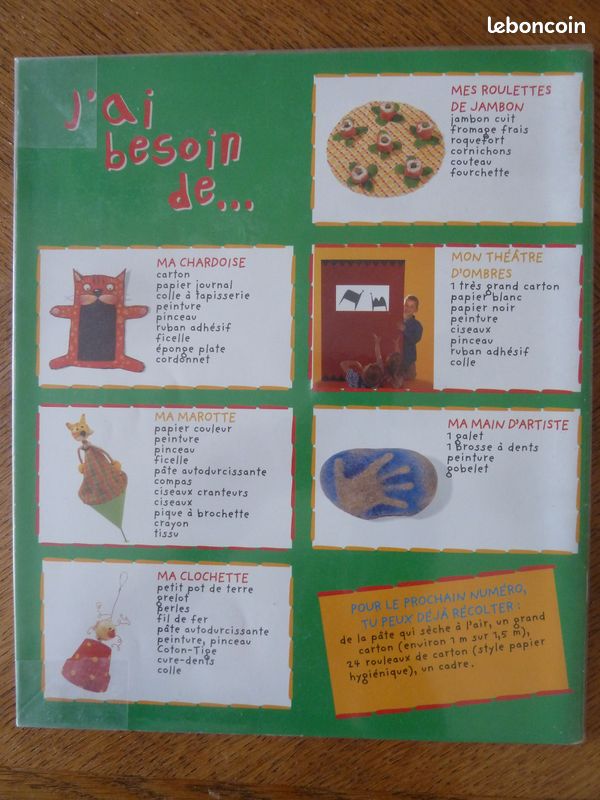 leboncoin
J'ai
besoin
de...
MES ROULETTES
DE JAMBON
jambon cuit
fromage frais
roquefort
cornichons
couteau
fourchette
MA CHARDOISE
carton
papier journal
colle à tapisserie
peinture
pinceau
ruban adhésif
ficelle
éponge plate
cordonnet
MON THÉÂTRE
D'OMBRES
1 très grand carton
papier blanc
papier noir
peinture
ciseaux
pinceau
ruban adhésif
colle
MA MAROTTE
papier couleur
peinture
pinceau
ficelle
pâte autodurcissante
compas
ciseaux cranteurs
ciseaux
pique à brochette
crayon
tissu
MA MAIN D'ARTISTE
1 galet
1 brosse à dents
peinture
gobelet
MA CLOCHETTE
petit pot de terre
grelot
perles
fil de fer
pâte autodurcissante
peinture, pinceau
Coton-Tige
cure-dents
colle
POUR LE PROCHAIN NUMÉRO,
TU PEUX DÉJÀ RÉCOLTER :
de la pâte qui sèche à l'air, un grand
carton (environ 1 m sur 1,5 m),
24 rouleaux de carton (style papier
hygiénique), un cadre.